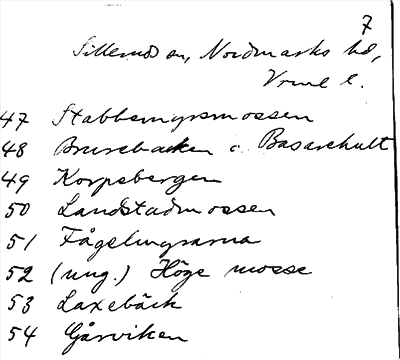 7
Sillerud sn, Nordmarks hd,
Vrml l.
47 Stabbemyrsmossen
48 Brurebacken i Basarehult
49 Korpebergen
50 Landstadmossen
51 Fågelmyrarna
52 (ung.) Höge mosse
53 Laxebäck
54 Gårviken